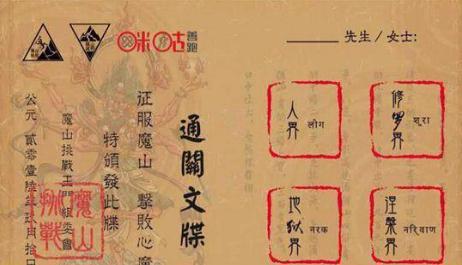 咪咕善跑
先生/女士:
通關文牒
征服魔山 擊敗心魔
特頒發此牒
魔山挑戰
組委會
公元 貳零壹陸年玖月拾
魔山挑戰
人界 लोग
修罗界 शूरा
地狱界 नरक
涅槃界 नरिवाण